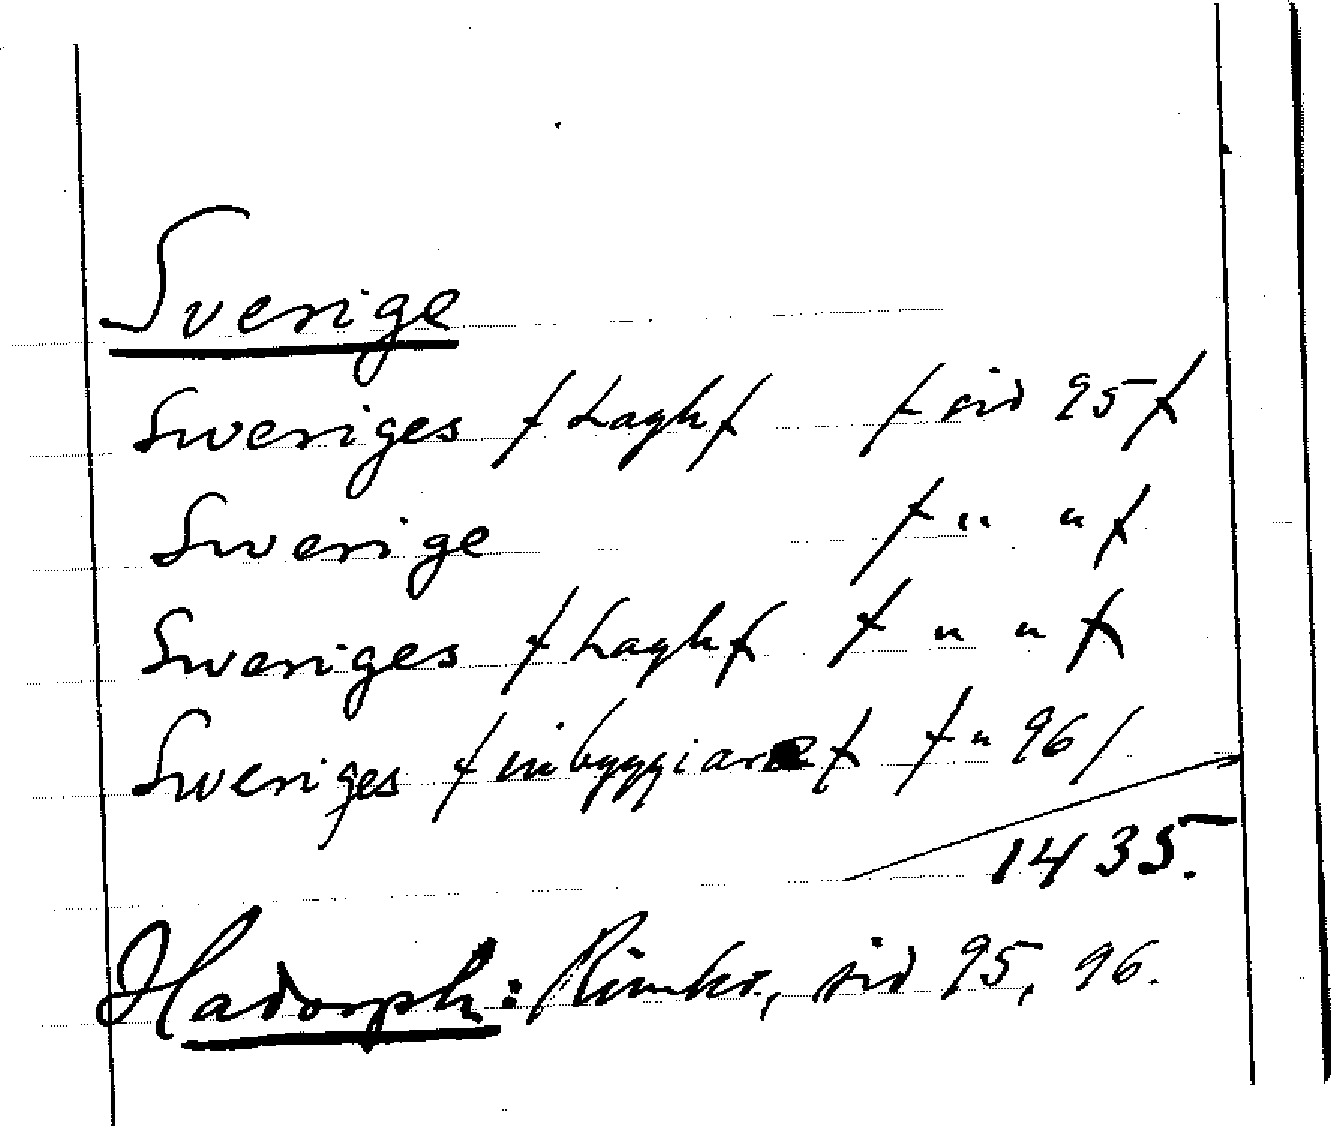 Sverige
Sweriges /Laghf/ /sid 95/
Swerige /" "/
Sweriges /Laghf/ /" "/
Sweriges /inbyggiare/ /" 96/
1435.
Hadorph: Rimkr, sid 95, 96.